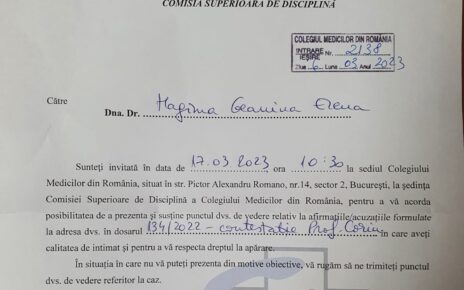 COMISIA SUPERIOARĂ DE DISCIPLINĂ
COLEGIUL MEDICILOR DIN ROMÂNIA
INTRARE
IEȘIRE Nr. 2138
Ziua 6 Luna 03 Anul 2023
Către
Dna. Dr. Hagima Geanina Elena
Sunteți invitată în data de 17.03 2023 ora 10:30 la sediul Colegiului
Medicilor din România, situat în str. Pictor Alexandru Romano, nr.14, sector 2, București, la ședința
Comisiei Superioare de Disciplină a Colegiului Medicilor din România, pentru a vă acorda
posibilitatea de a prezenta și susține punctul dvs. de vedere relativ la afirmațiile/acuzațiile formulate
la adresa dvs. în dosarul 134/2022 - contestatie Prof. Corin în care aveți
calitatea de intimat și pentru a vă respecta dreptul la apărare.
În situația în care nu vă puteți prezenta din motive obiective, vă rugăm să ne trimiteți punctul
dvs. de vedere referitor la caz.